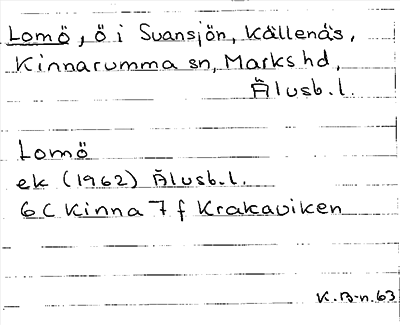 Lomö, ö i Svansjön, Källenäs,
Kinnarumma sn, Marks hd,
Älvsb.l.
Lomö
ek (1962) Älvsb.l.
6C Kinna 7 f Krakaviken
K.B-n.63